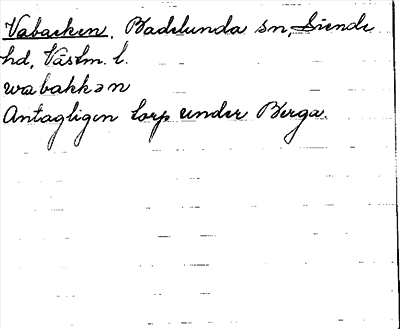 Vabacken. Badelunda sn, Siende
hd, Västm. l.
wabakkən
Antagligen torp under Berga.